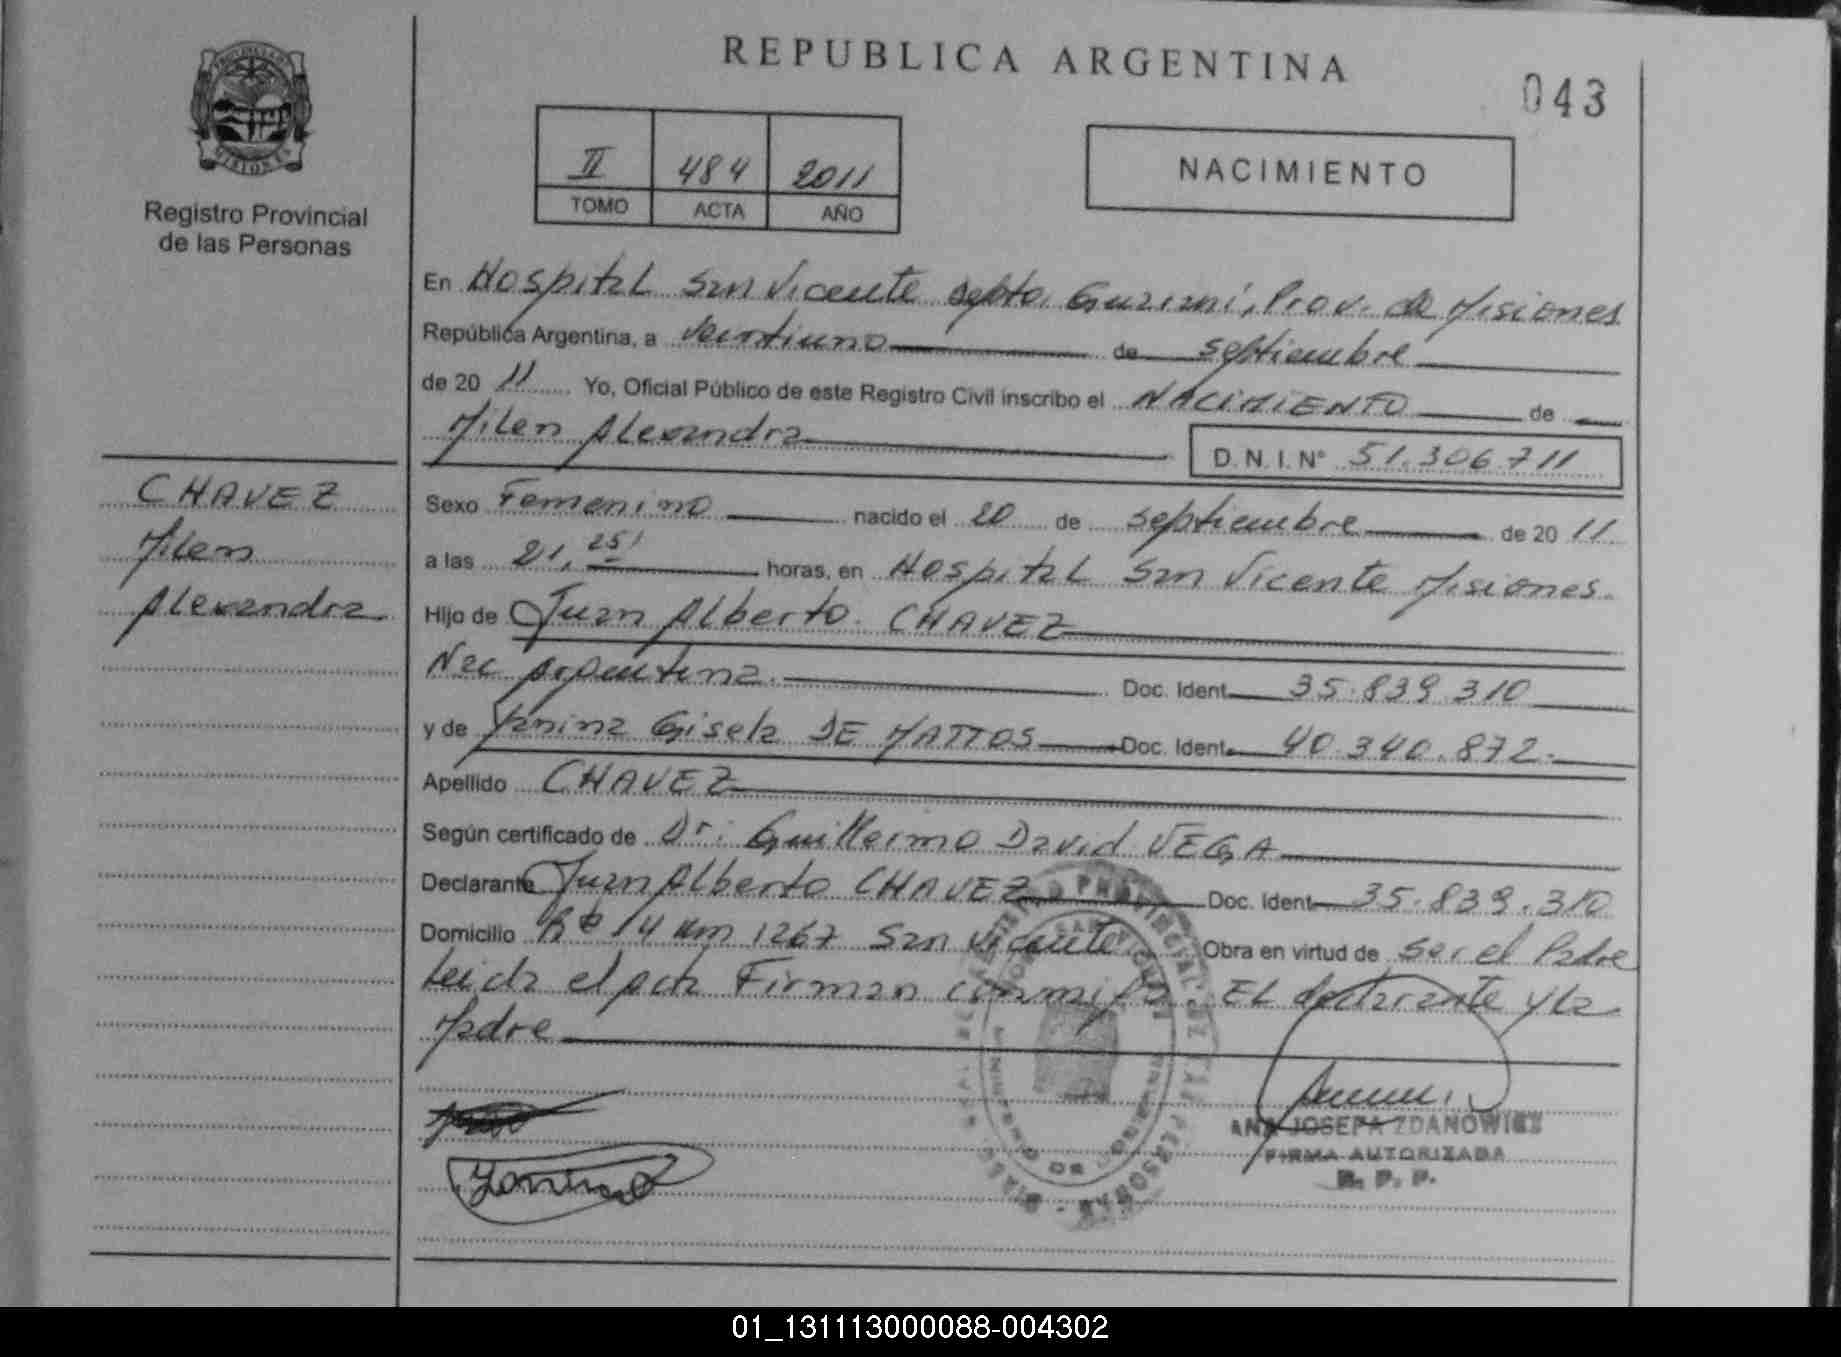 REPUBLICA ARGENTINA
043
PROVINCIA DE MISIONES
Registro Provincial
de las Personas
II 484 2011
TOMO ACTA AÑO
NACIMIENTO
En Hospital San Vicente Depto. Guaraní, Prov. de Misiones
República Argentina, a veintiuno de septiembre
de 20 11 Yo, Oficial Público de este Registro Civil inscribo el NACIMIENTO de
Milen Alexandra
D.N.I.N° 51.306.711
CHAVEZ
Milen
Alexandra
Sexo Femenino nacido el 20 de septiembre de 20 11
a las 21,25' horas, en Hospital San Vicente Misiones.
Hijo de Juan Alberto CHAVEZ
Nac Argentina. Doc. Ident. 35.839.310
y de Yanina Gisela DE MATTOS Doc. Ident. 40.340.872.
Apellido CHAVEZ
Según certificado de Dr: Guillermo David VEGA
Declarante Juan Alberto CHAVEZ Doc. Ident. 35.839.310
Domicilio Rta 14 Km 1267 San Vicente Obra en virtud de Ser el Padre
Leida el acta Firman conmigo. EL declarante y la
Madre
Yanina
ANA JOSEFA ZDANOWICZ
FIRMA AUTORIZADA
R. P. P.
01_131113000088-004302